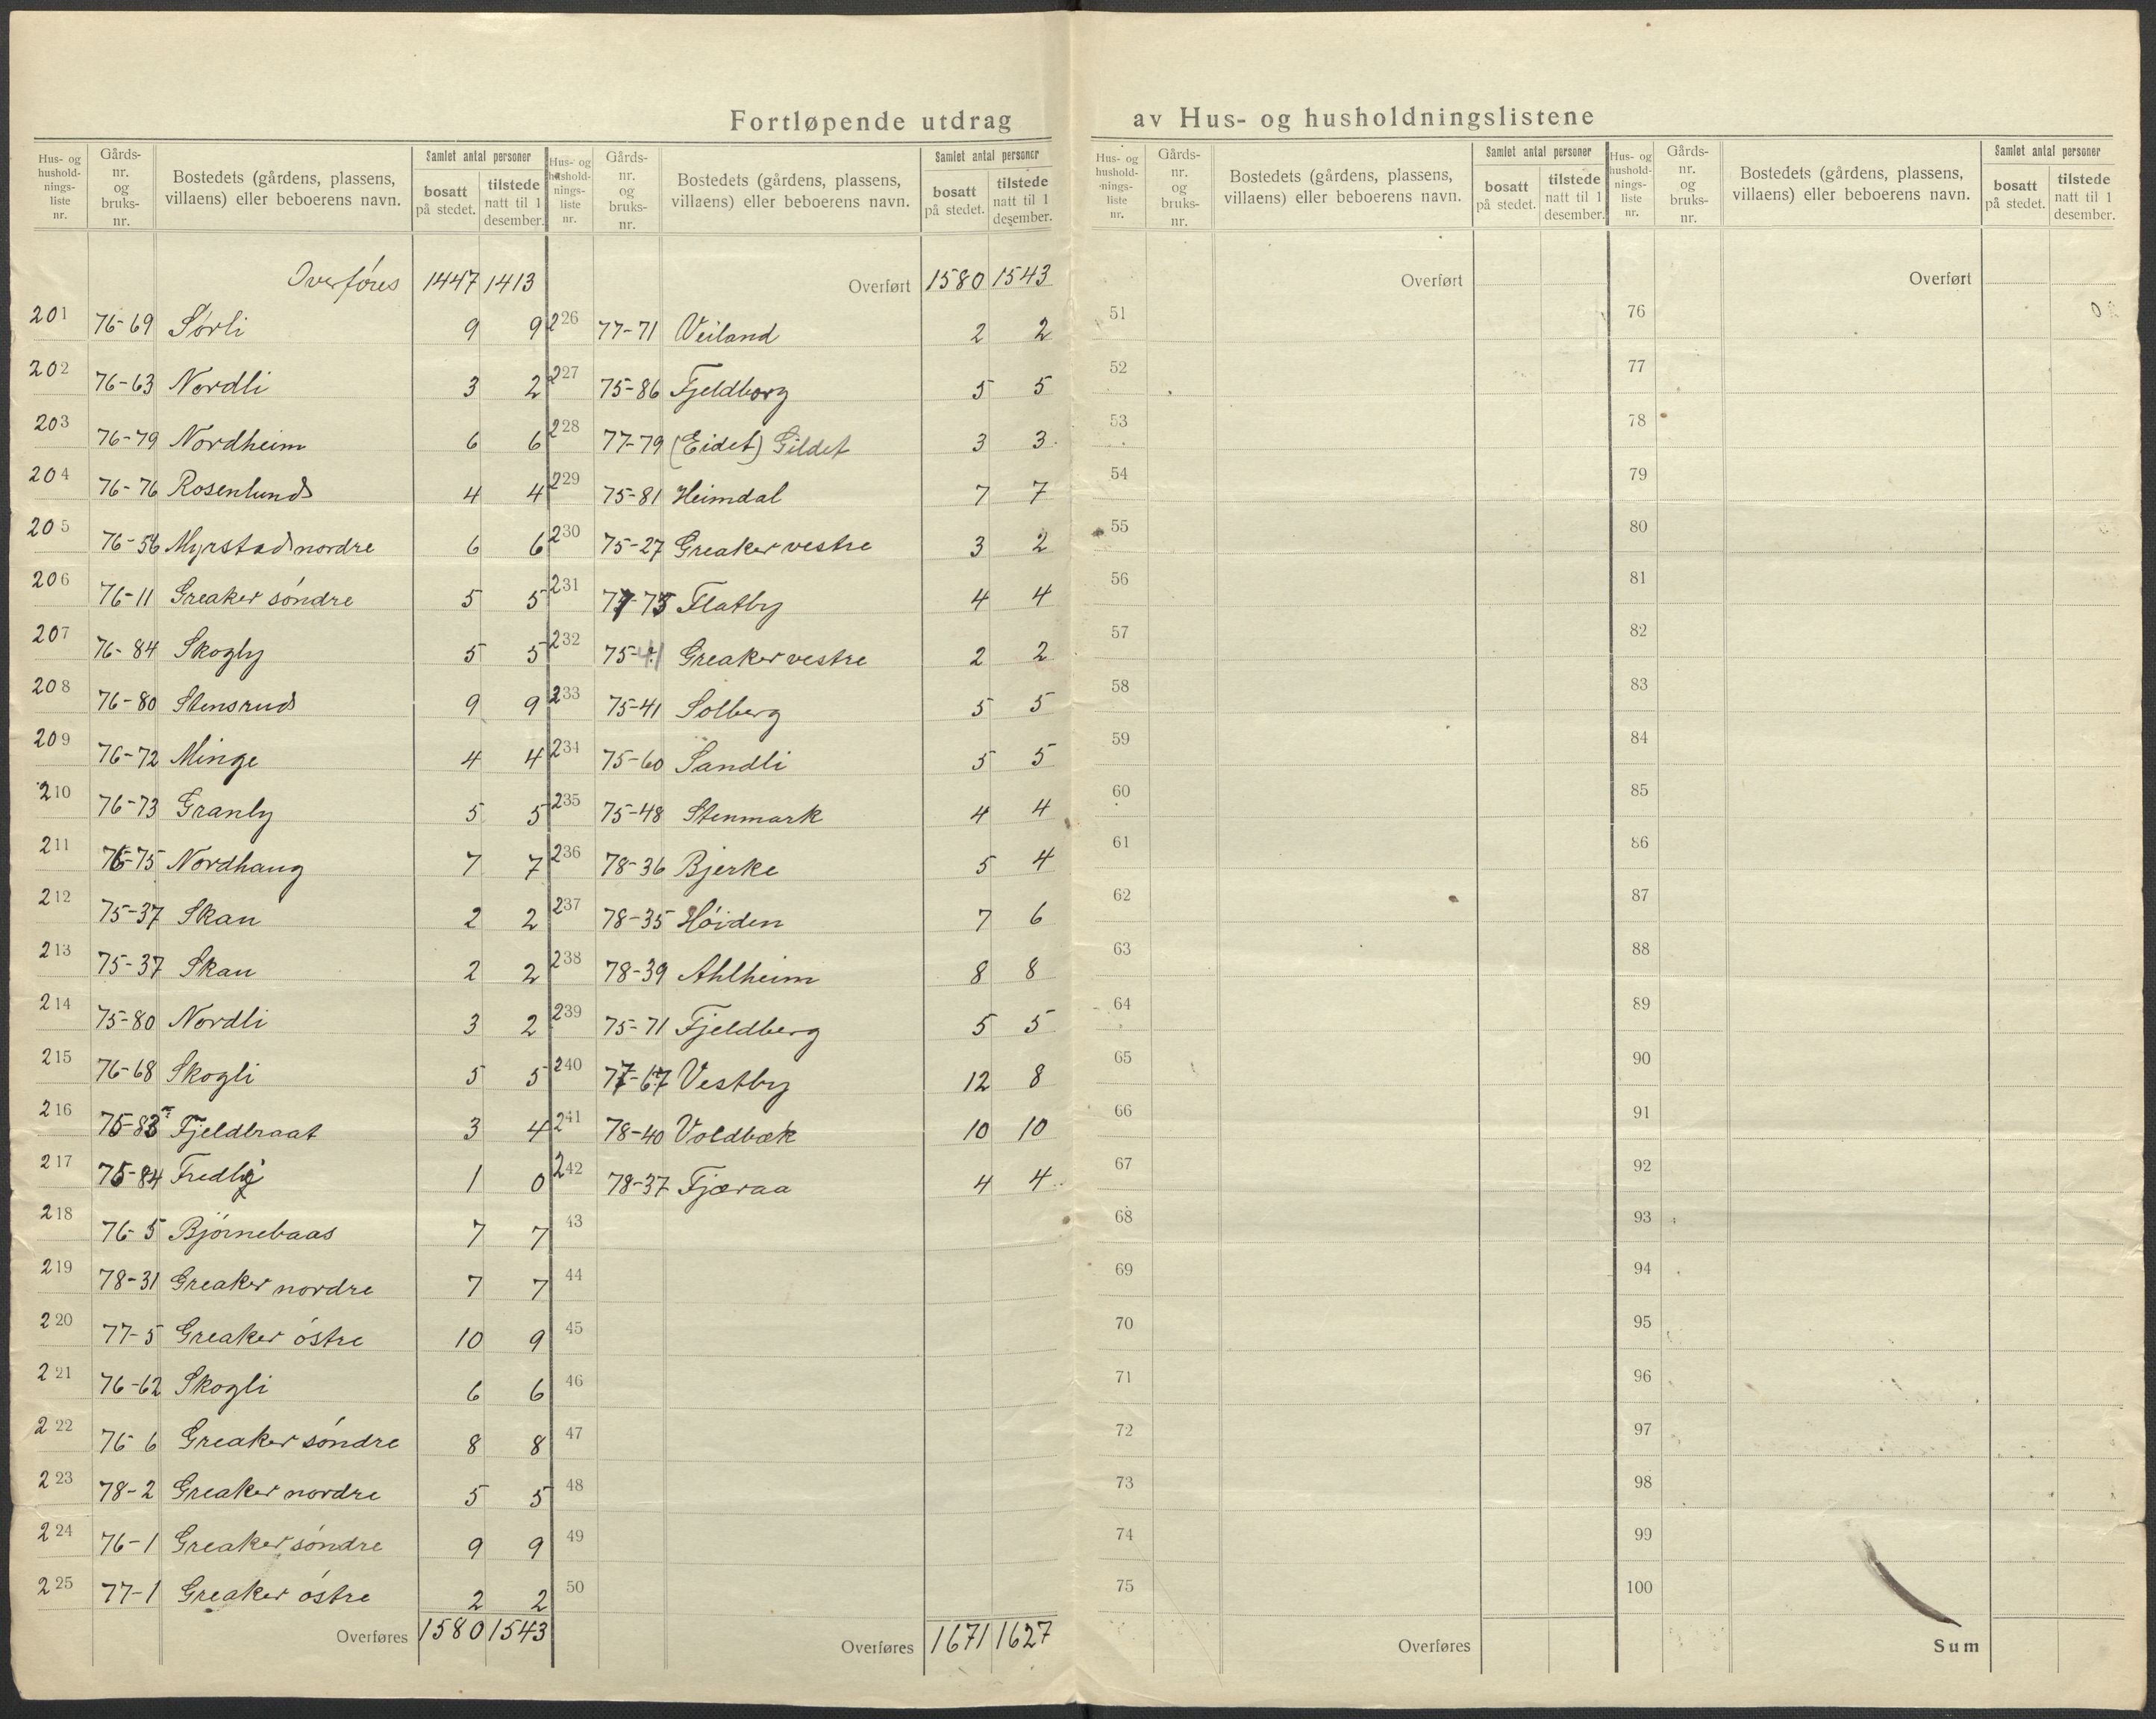 Fortløpende utdrag av Hus- og husholdningslistene
Hus- og hushold-nings-liste nr. Gårds-nr. og bruks-nr. Bostedets (gårdens, plassens, villaens) eller beboerens navn. Samlet antal personer bosatt på stedet. tilstede natt til 1 desember.
Overføres 1447 1413
201 76-69 Sørli 9 9
202 76-63 Nordli 3 2
203 76-79 Nordheim 6 6
204 76-76 Rosenlund 4 4
205 76-56 Myrstad nordre 6 6
206 76-11 Greaker söndre 5 5
207 76-84 Skogly 5 5
208 76-80 Stensrud 9 9
209 76-72 Minge 4 4
210 76-73 Granly 5 5
211 76-75 Nordhaug 7 7
212 75-37 Skau 2 2
213 75-37 Skau 2 2
214 75-80 Nordli 3 2
215 76-68 Skogli 5 5
216 75-83 Fjeldbraat 3 4
217 75-84 Fredly 1 0
218 76-5 Bjørnebaas 7 7
219 78-31 Greaker nordre 7 7
220 77-5 Greaker østre 10 9
221 76-62 Skogli 6 6
222 76-6 Greaker søndre 8 8
223 78-2 Greaker nordre 5 5
224 76-1 Greaker søndre 9 9
225 77-1 Greaker østre 2 2
Overføres 1580 1543
Hus- og hushold-nings-liste nr. Gårds-nr. og bruks-nr. Bostedets (gårdens, plassens, villaens) eller beboerens navn. Samlet antal personer bosatt på stedet. tilstede natt til 1 desember.
Overført 1580 1543
226 77-71 Veiland 2 2
227 75-86 Fjeldborg 5 5
228 77-79 (Eidet) Gildet 3 3
229 75-81 Heimdal 7 7
230 75-27 Greaker vestre 3 2
231 77-75 Flatby 4 4
232 75-41 Greaker vestre 2 2
233 75-41 Solberg 5 5
234 75-60 Sandli 5 5
235 75-48 Stenmark 4 4
236 78-36 Bjerke 5 4
237 78-35 Høiden 7 6
238 78-39 Ahlheim 8 8
239 75-71 Fjeldberg 5 5
240 77-67 Vestby 12 8
241 78-40 Voldbæk 10 10
242 78-37 Fjæraa 4 4
43
44
45
46
47
48
49
50
Overføres 1671 1627
Hus- og hushold-nings-liste nr. Gårds-nr. og bruks-nr. Bostedets (gårdens, plassens, villaens) eller beboerens navn. Samlet antal personer bosatt på stedet. tilstede natt til 1 desember.
Overført
51
52
53
54
55
56
57
58
59
60
61
62
63
64
65
66
67
68
69
70
71
72
73
74
75
Overføres
Hus- og hushold-nings-liste nr. Gårds-nr. og bruks-nr. Bostedets (gårdens, plassens, villaens) eller beboerens navn. Samlet antal personer bosatt på stedet. tilstede natt til 1 desember.
Overført
76
77
78
79
80
81
82
83
84
85
86
87
88
89
90
91
92
93
94
95
96
97
98
99
100
Sum